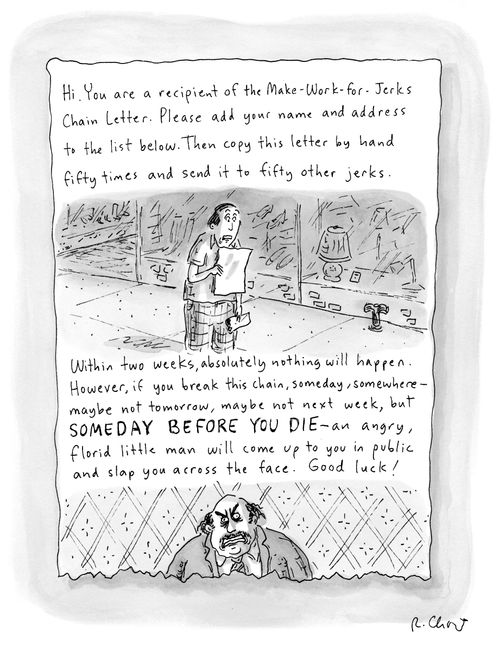 Hi. You are a recipient of the Make-Work-for-Jerks
Chain Letter. Please add your name and address
to the list below. Then copy this letter by hand
fifty times and send it to fifty other jerks.
Within two weeks, absolutely nothing will happen.
However, if you break this chain, someday, somewhere—
maybe not tomorrow, maybe not next week, but
SOMEDAY BEFORE YOU DIE—an angry,
florid little man will come up to you in public
and slap you across the face. Good luck!
R. Chast